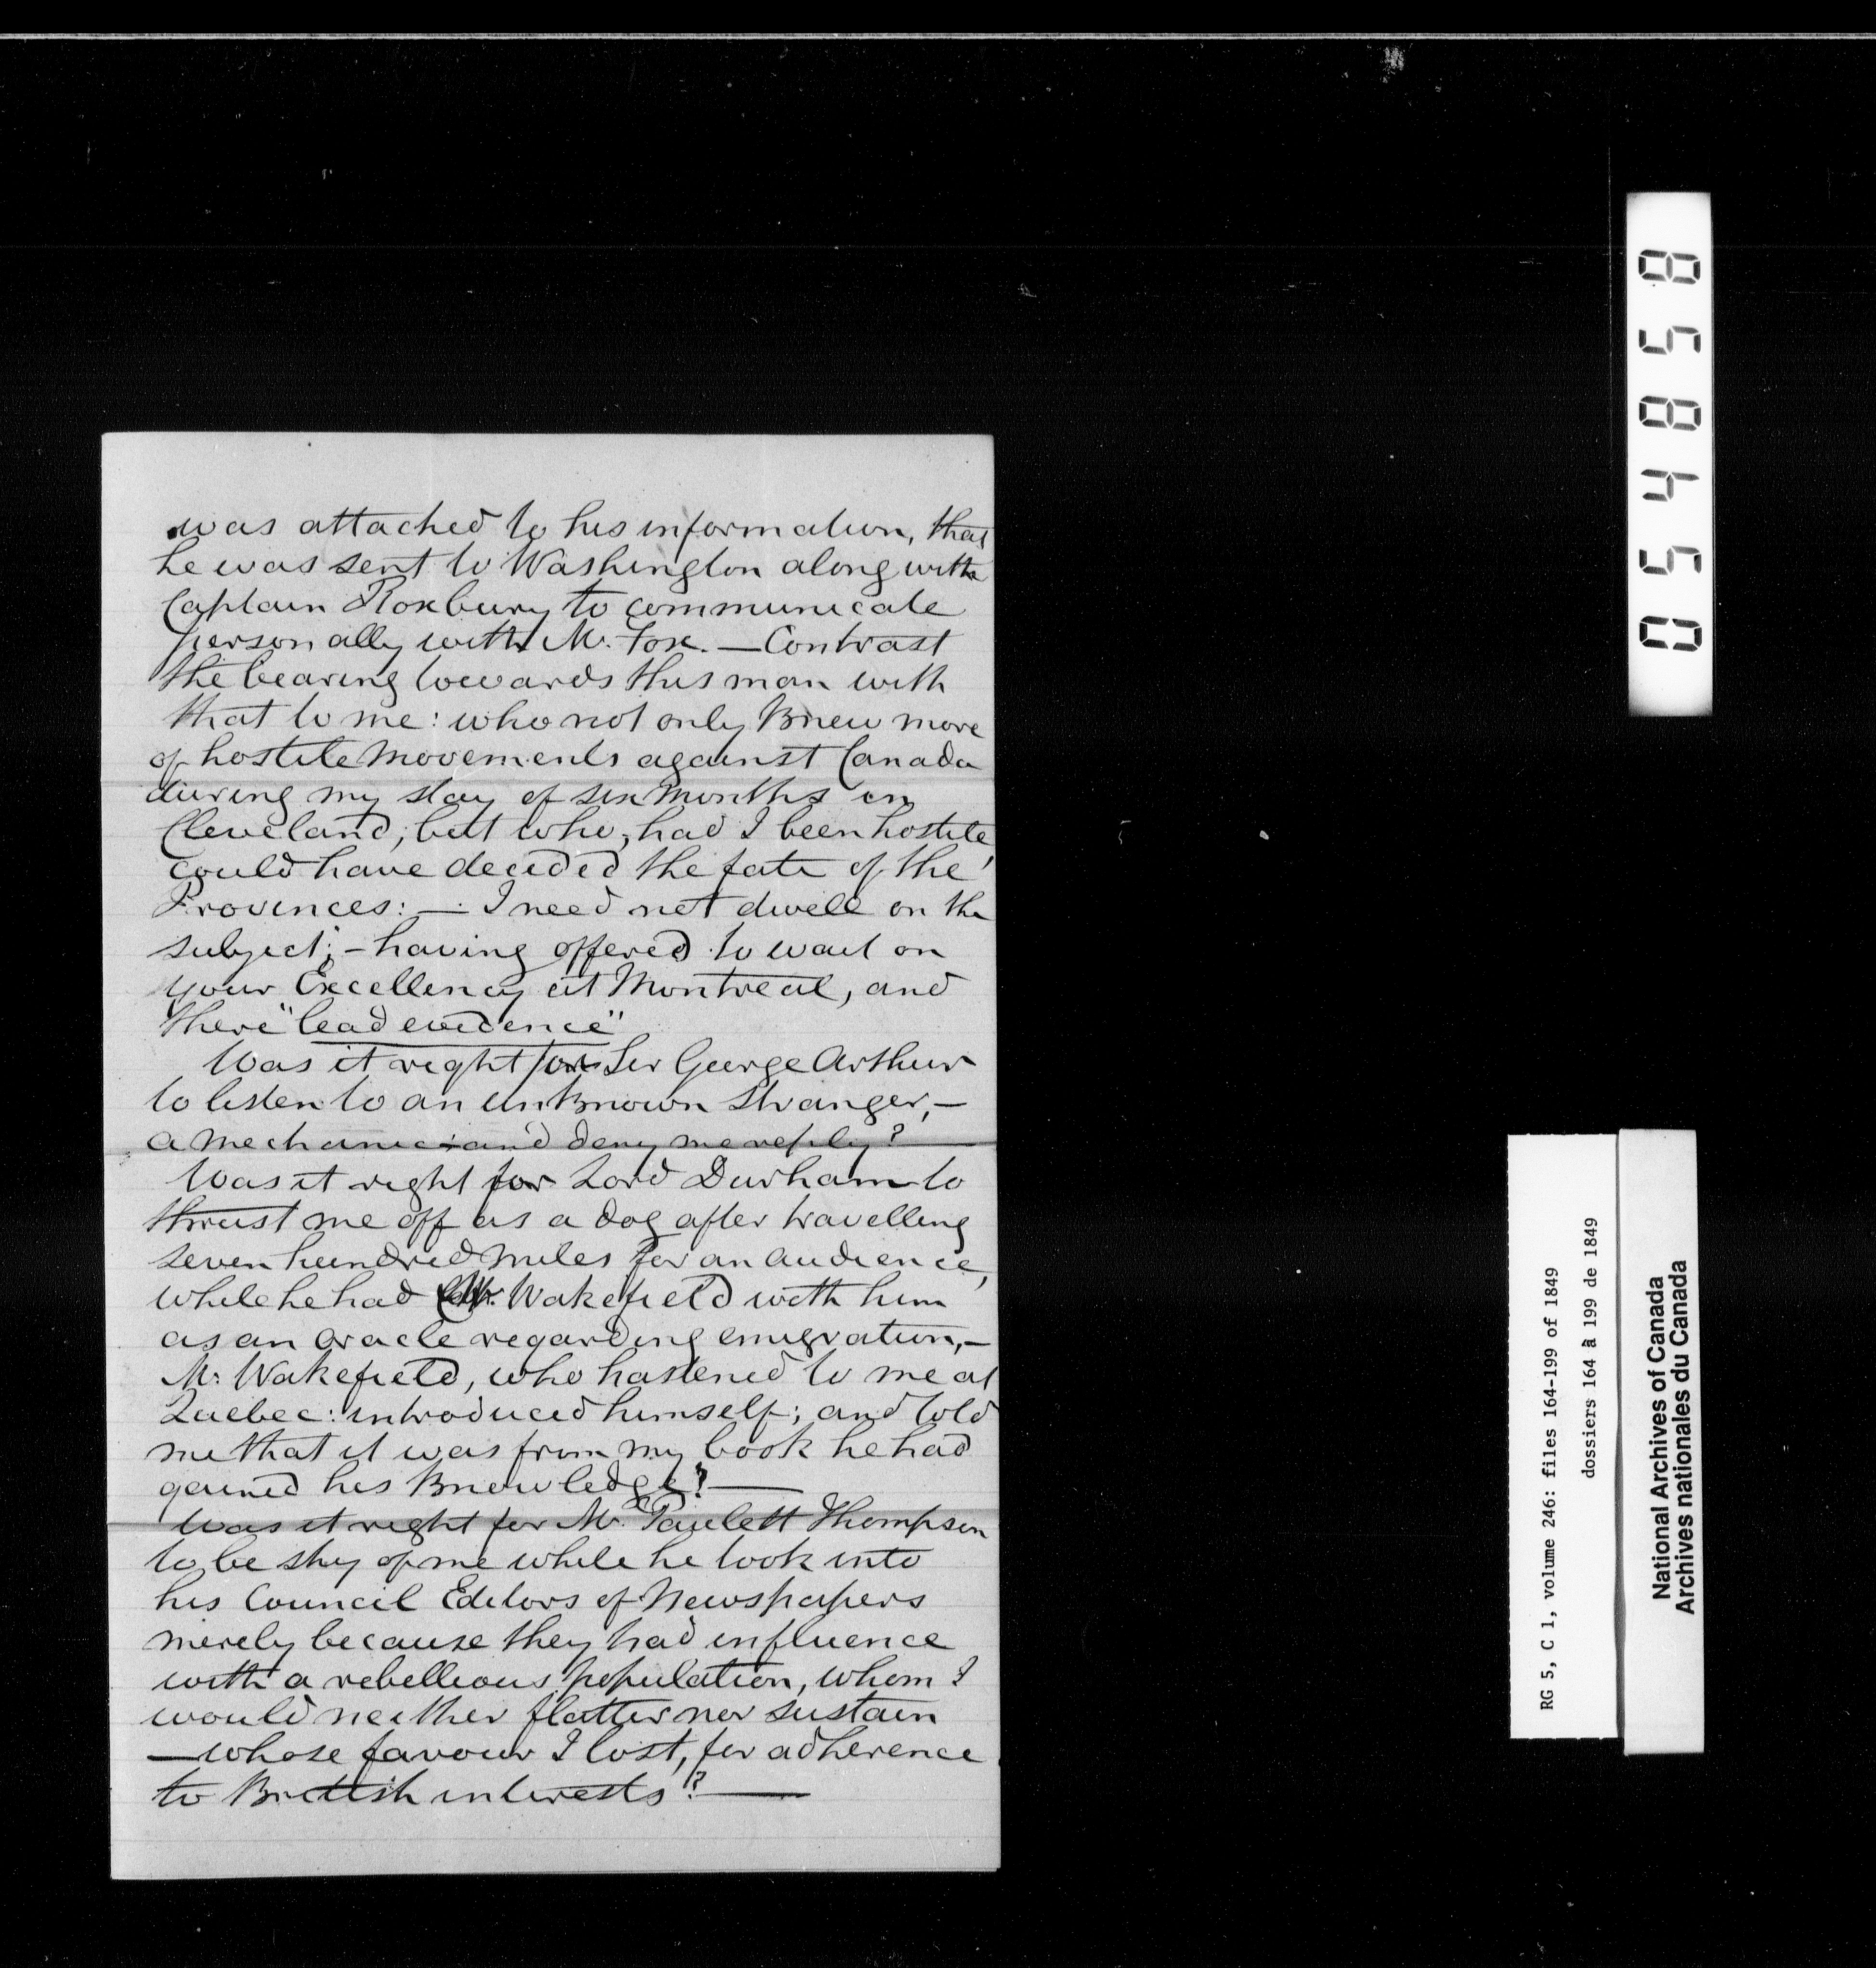 was attached to his information, that
he was sent to Washington along with
Captain Roxbury to communicate
personally with Mr. Fox. — Contrast
the bearing towards this man with
that to me: who not only knew more
of hostile movements against Canada
during my stay of six months in
Cleveland, but who, had I been hostile,
could have decided the fate of the
Provinces: — I need not dwell on the
subject; - having offered to wait on
your Excellency at Montreal, and
there "lead evidence"
Was it right for Sir George Arthur
to listen to an unknown stranger, —
a mechanic and deny me reply? —
Was it right for Lord Durham to
thrust me off as a dog after travelling
seven hundred miles for an audience,
while he had Mr. Wakefield with him
as an oracle regarding emigration, —
Mr. Wakefield, who hastened to me at
Quebec: introduced himself; and told
me that it was from my book he had
gained his knowledge? —
Was it right for Mr. Paulett Thompson
to be shy of me while he took into
his Council Editors of Newspapers
merely because they had influence
with a rebellious population, whom I
would neither flatter nor sustain
— whose favour I lost, for adherence
to British interests? —
054858
RG 5, C 1, volume 246: files 164-199 of 1849
dossiers 164 à 199 de 1849
National Archives of Canada
Archives nationales du Canada